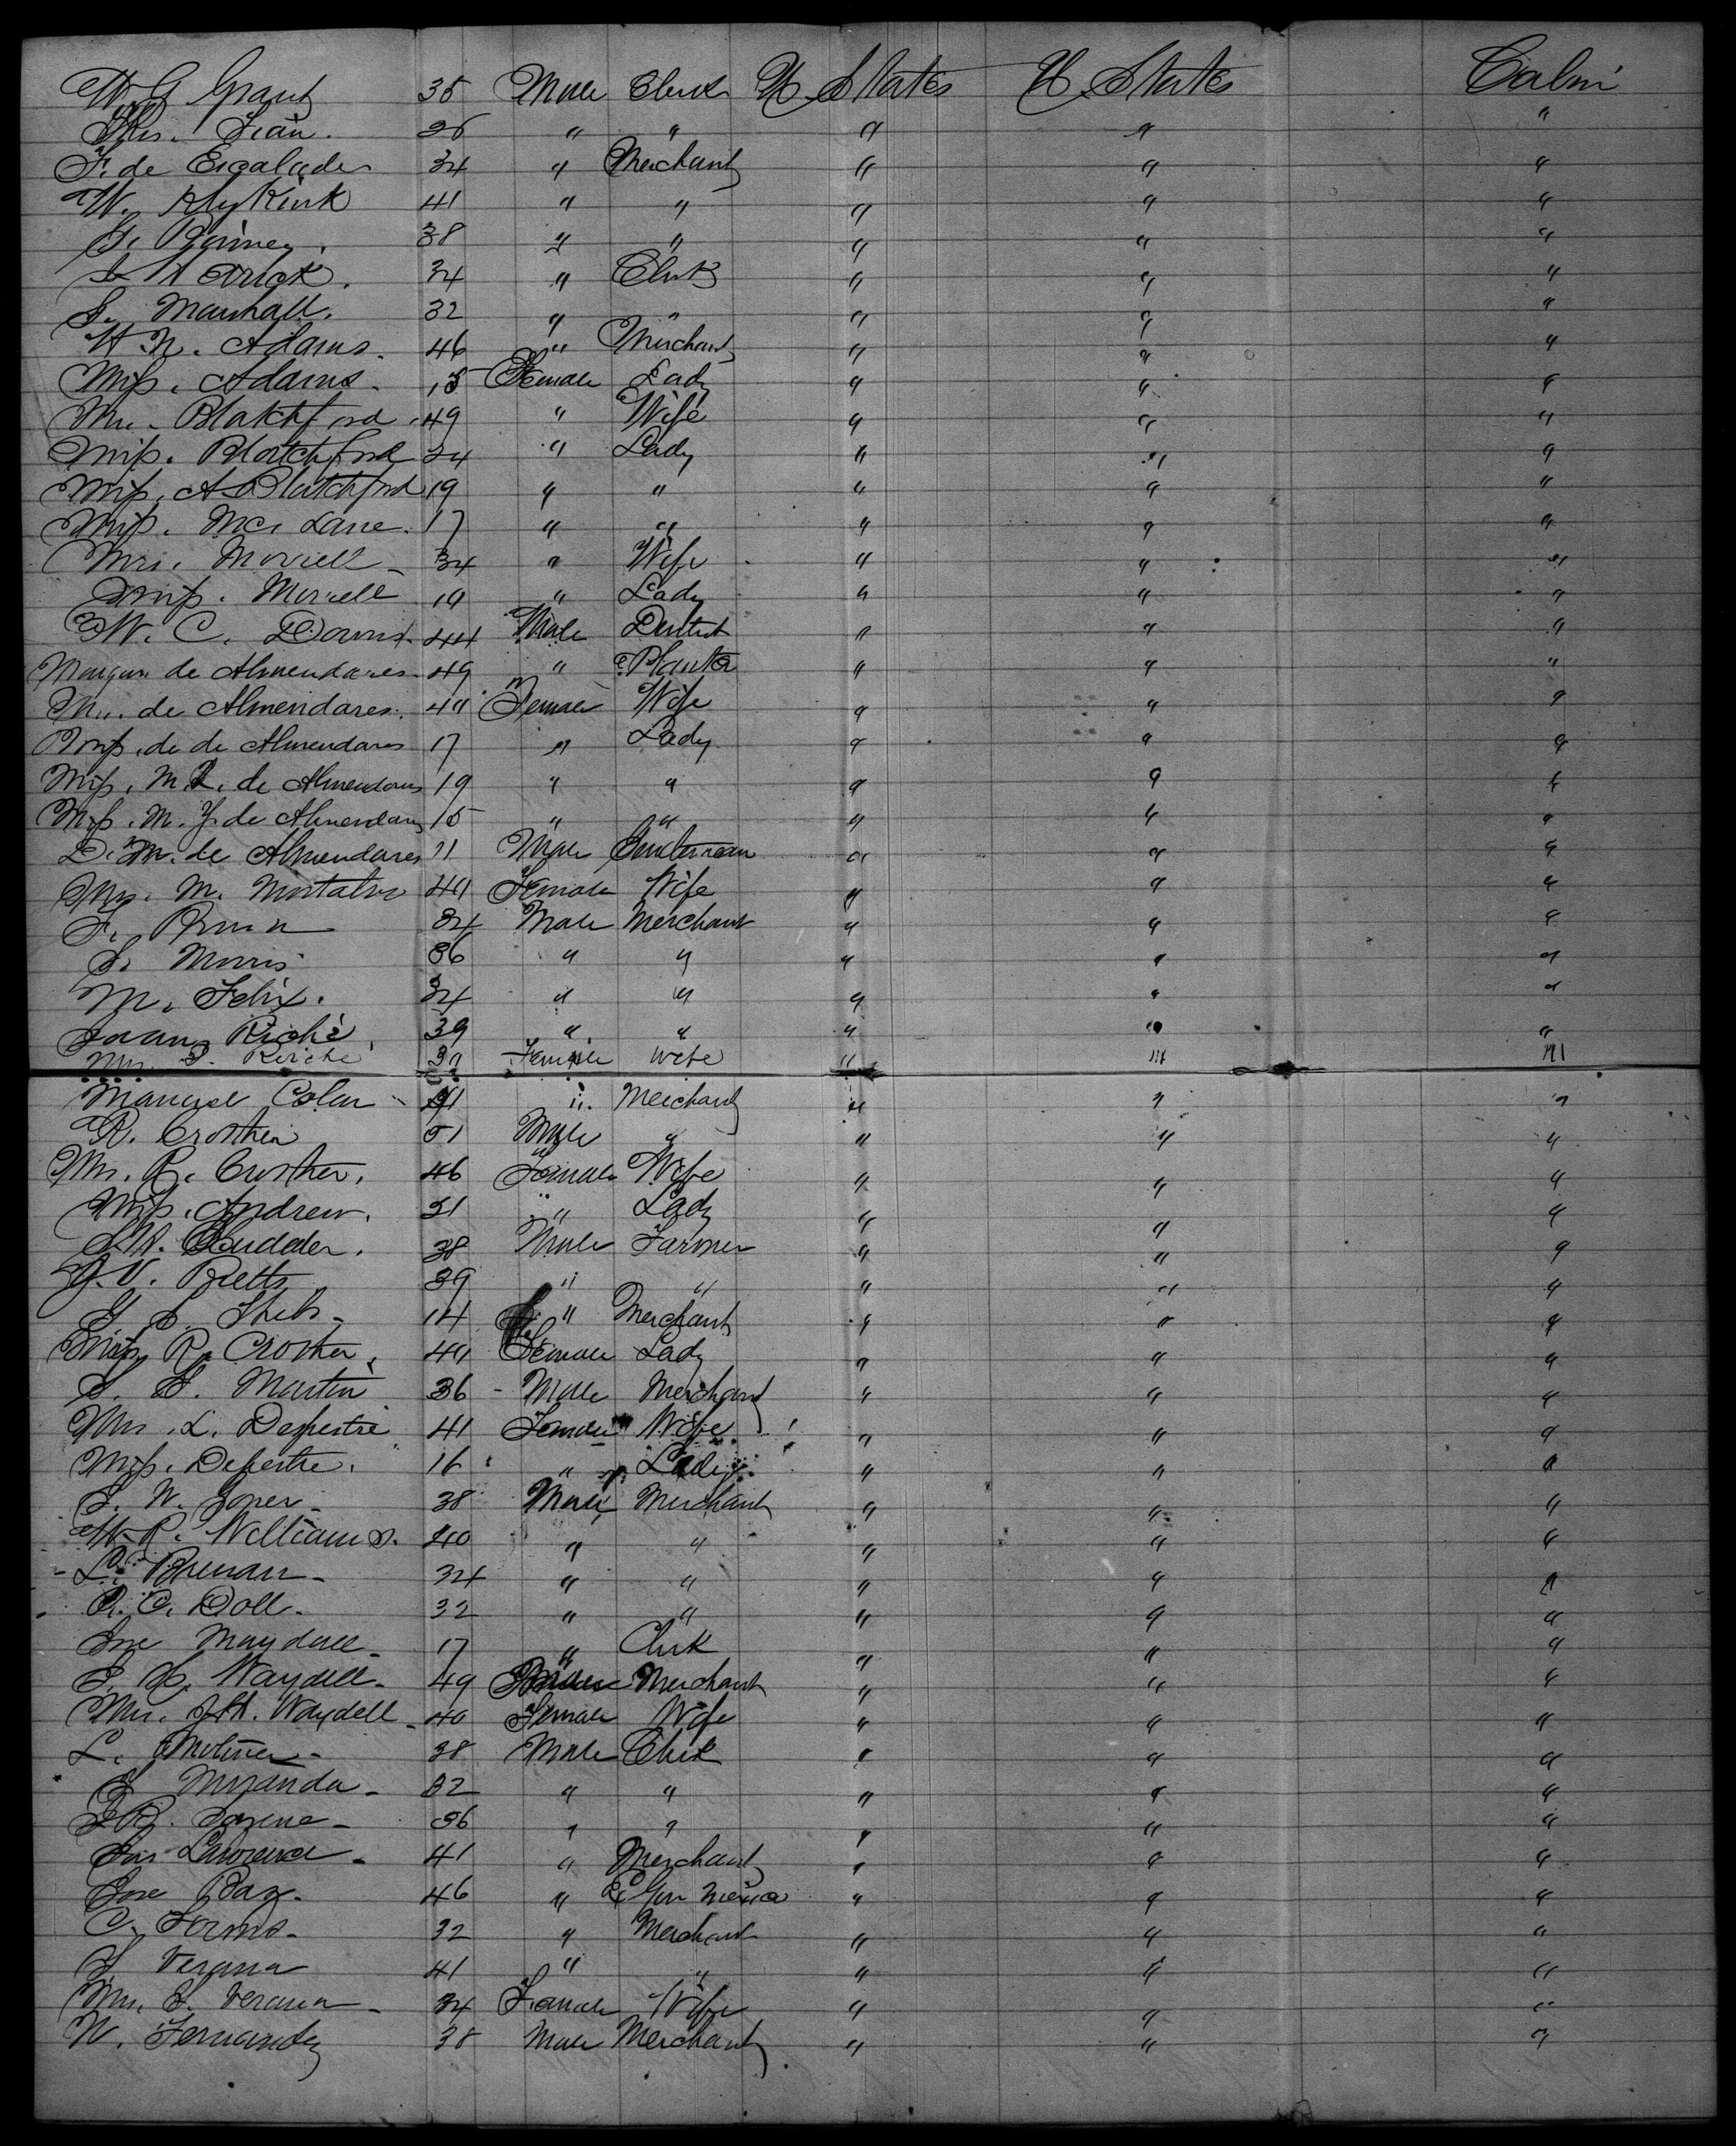 W G Grant 35 Male Clerk U States U States Cabin
Thos. Jean. 26 " " " " "
F. de Escalade 34 " Merchant " " "
W. 41 " " " " "
G. 38 " " " " "
34 " Clerk " " "
S. Marshall. 32 " " " " "
W. N. Adams. 46 " Merchant " " "
Miss. Adams. 18 Female Lady " " "
Mrs. Blatchford 49 " Wife " " "
Miss. Blatchford 24 " Lady " " "
Miss. A Blatchford 19 " " " " "
Miss. Mc. Lane. 17 " " " " "
Mrs. Morrell 34 " Wife " " "
Miss. Morrell 19 " Lady " " "
W. C. Downs. 44 Male Dentist " " "
de Almendares 49 " Planter " " "
Mrs. de Almendares. 40 Female Wife " " "
Miss. de de Almendares 17 " Lady " " "
Miss. M. L. de Almendares 19 " " " " "
Miss. M. J. de Almendares 15 " " " " "
D. M. de Almendares 11 Male Gentleman " " "
Mrs. M. Montalvo 40 Female Wife " " "
F. 34 Male Merchant " " "
S. Morris 36 " " " " "
M. Felix. 34 " " " " "
Juan Riché. 39 " " " " "
Mrs. J. Reiché 30 Female Wife " " "
Manuel Colon 41 " Merchant " " "
R. Crosher 51 Male " " " "
Mrs. R. Crosher. 46 Female Wife " " "
Miss. Andrew. 21 " Lady " " "
Scudder. 38 Male Farmer " " "
J. V. Betts 39 " " " " "
14 " Merchant " " "
Miss R. Crosher. 40 Female Lady " " "
S. S. Martin 36 Male Merchant " " "
Mrs. L. Depestre 41 Female Wife " " "
Miss. Depestre. 16 " Lady " " "
S. W. Joner 38 Male Merchant " " "
W. R. Williams. 40 " " " " "
L. Brenan 34 " " " " "
R. C. Doll. 32 " " " " "
Jose 17 " Clerk " " "
Waydell. 49 Male Merchant " " "
Mrs. J. H. Waydell 40 Female Wife " " "
L. Moliner 38 Male Clerk " " "
E. Miranda 32 " " " " "
36 " " " " "
Lawrence 41 " Merchant " " "
Jose Baz. 46 " " " "
C. 32 " Merchant " " "
S. Verana 41 " " " " "
Mrs. S. Verana 34 Female Wife " " "
W. Fernandez 38 Male Merchant " " "